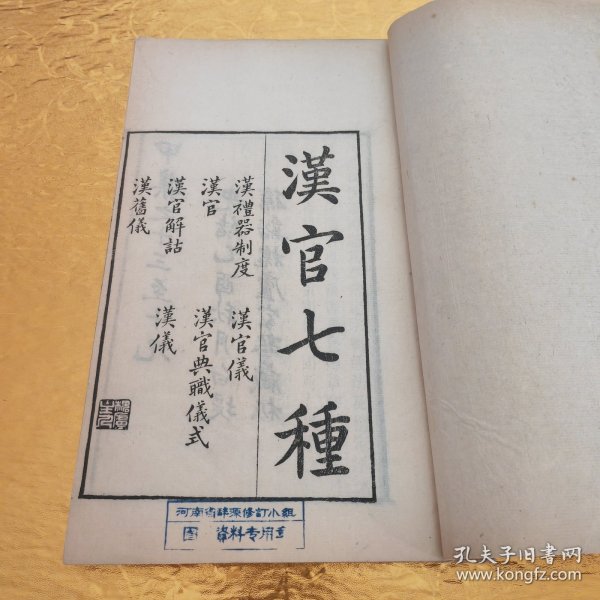 漢官七種
漢禮器制度
漢官
漢官解詁
漢舊儀
漢官儀
漢官典職儀式
漢儀
河南省辞源修訂小組
图 資料专用章
孔夫子旧书网
www.kongfz.com